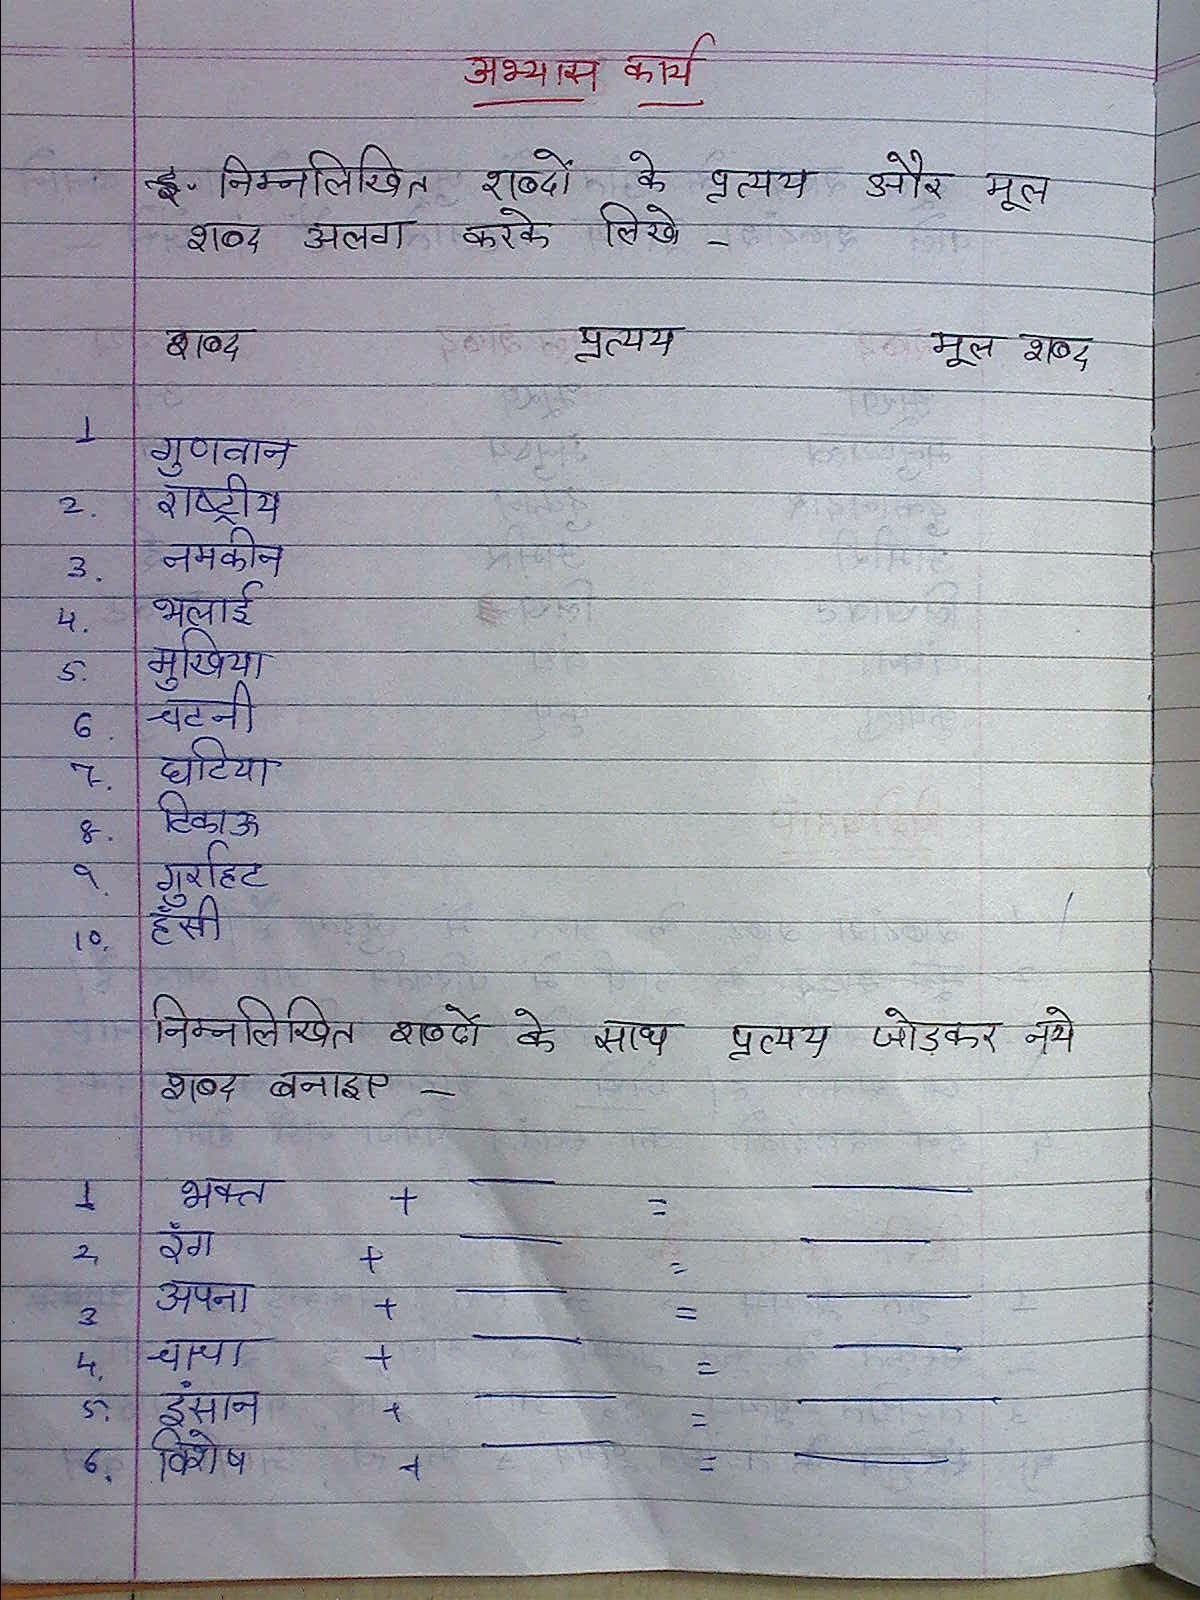 अभ्यास कार्य
इ. निम्नलिखित शब्दों के प्रत्यय और मूल
शब्द अलग करके लिखे –
शब्द प्रत्यय मूल शब्द
1 गुणवान
2. राष्ट्रीय
3. नमकीन
4. भलाई
5. मुखिया
6. चटनी
7. घटिया
8. टिकाऊ
९. गुर्राहट
10. हँसी
निम्नलिखित शब्दों के साथ प्रत्यय जोड़कर नये
शब्द बनाइए –
1 भक्त + ____ = ____
2, रंग + ____ = ____
3 अपना + ____ = ____
4. चाचा + ____ = ____
5. इंसान + ____ = ____
6. विशेष + ____ = ____